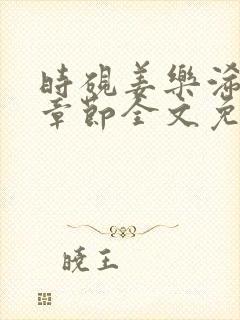 時硯姜樂浠
章節全文免
曉王